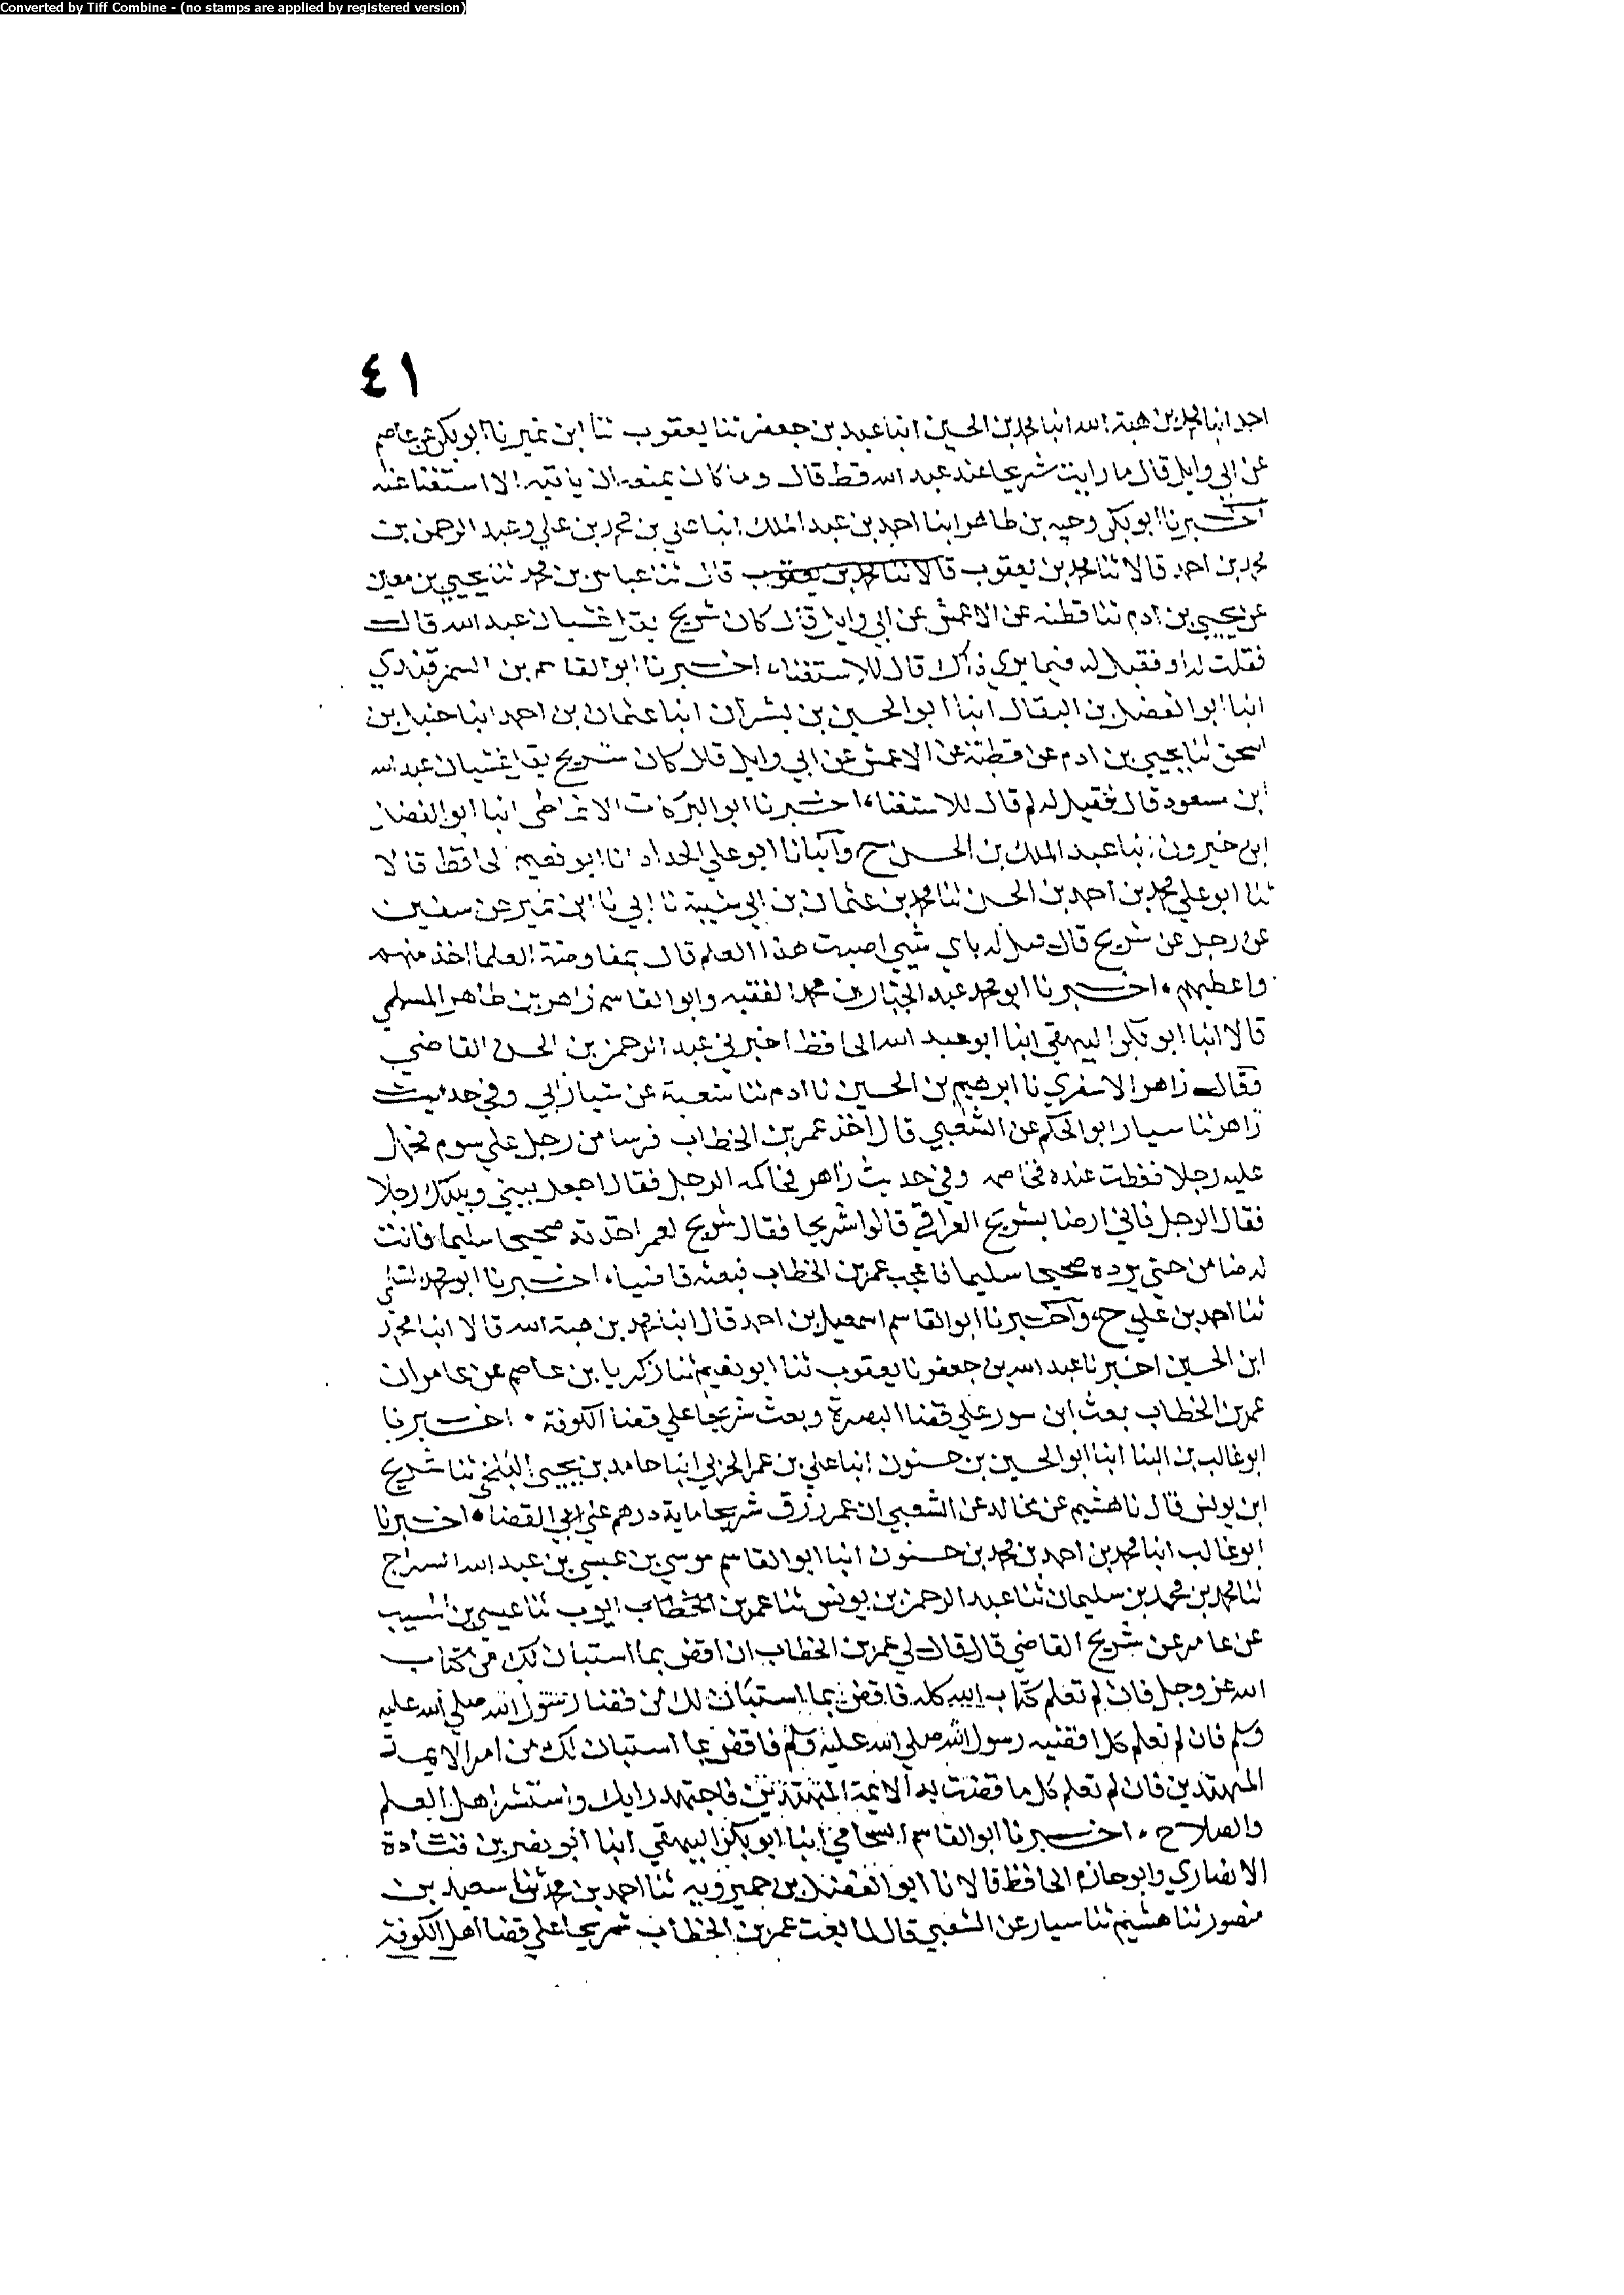 Converted by Tiff Combine - (no stamps are applied by registered version)
٤١
احمد انبا محمد بن هبة الله انبا محمد بن الحسين انبا عبد بن جعفر ثنا يعقوب ثنا ابن نمير نا ابو بكر عن عاصم
عن ابي وايل قال ما رايت شريحا عند عبد الله قط قال وما كان يمنعه ان ياتيه الا استغنا عنه
اخبرنا ابو بكر وجيه بن طاهر انبا احمد بن عبد الملك انبا علي بن محمد بن علي وعبد الرحمن بن
محمد بن احمد قالا ثنا محمد بن يعقوب قالا ثنا محمد بن يعقوب قال ثنا عباس بن محمد ثنا يحيي بن معين
عن يحيي بن ادم ثنا قطبه عن الاعمش عن ابي وايل قال كان شريح يقل غشيان عبد الله قال
فقلت له او فقيل له فيما يري ذاك قال للاستغناء اخبرنا ابو القاسم بن السمرقندي
انبا ابو الفضل بن البقال انبا ابو الحسين بن بشران انبا عثمان بن احمد انبا حنبل بن
اسحق ثنا يحيي بن ادم عن قطبة عن الاعمش عن ابي وايل قال كان شريح يقل غشيان عبد الله
ابن مسعود قال فقيل له لم قال للاستغناء اخبرنا ابو البركات الانماطي انبا ابو الفضل
ابن خيرون انبا عبد الملك بن الحسن ح وانبانا ابو علي الحداد انا ابو نعيم الحافظ قالا
ثنا ابو علي محمد بن احمد بن الحسن ثنا محمد بن عثمان بن ابي شيبة نا ابي نا ابن نمير عن سفين
عن رجل عن شريح قال قيل له باي شيي اصبت هذا العلم قال بمفاوضة العلما اخذ منهم
واعطيهم اخبرنا ابو محمد عبد الجبار بن محمد الفقيه وابو القاسم زاهر بن طاهر المسلمي
قالا انبا ابو بكر البيهقي انبا ابو عبد الله الحافظ اخبرني عبد الرحمن بن الحسن القاضي
فقال زاهر الاسفري نا ابرهيم بن الحسين نا ادم ثنا شعبة عن سيار ابي وفي حديث
زاهر ثنا سيار ابو الحكم عن الشعبي قال اخذ عمر بن الخطاب فرسا من رجل علي سوم فحمل
عليه رجلا فعطب عنده فخاصمه وفي حديث زاهر فحاكمه الرجل فقال اجعل بيني وبينك رجلا
فقال الرجل فاني ارضا بشريح العراقي قالوا شريحا فقال شريح لعمر اخذته صحيحا سليما فانت
له ضامن حتي يرده صحيحا سليما فاعجب عمر بن الخطاب فبعثه قاضيا اخبرنا ابو محمد
ثنا احمد بن علي ح واخبرنا ابو القاسم اسمعيل بن احمد قال انبا محمد بن هبة الله قالا انبا محمد
ابن الحسين اخبرنا عبد الله بن جعفر نا يعقوب ثنا ابو نعيم ثنا زكريا بن عاصم عن عامر ان
عمر بن الخطاب بعث ابن سور علي قضا البصرة وبعث شريحا علي قضا الكوفة اخبرنا
ابو غالب بن البنا انبا ابو الحسين بن حسنون انبا علي بن عمر الحربي انبا حامد بن يحيي البلخي ثنا شريح
ابن يونس قال نا هشيم عن مخالد عن الشعبي ان عمر رزق شريحا ماية درهم علي القضا اخبرنا
ابو غالب انبا محمد بن احمد بن محمد بن حسنون انبا ابو القاسم موسي بن عيسي بن عبد الله السراج
ثنا محمد بن محمد بن سليمان ثنا عبد الرحمن بن يونس ثنا عمر بن الخطاب ايوب ثنا عيسي بن المسيب
عن عامر عن شريح القاضي قال قال لي عمر بن الخطاب ان اقض بما استبان لك من كتاب
الله عز وجل فان لم تعلم كتاب الله كله فاقض بما استبان لك من قضا رسول الله صلي الله عليه
وسلم فان لم تعلم كل اقضيه رسول الله صلي الله عليه وسلم فاقض بما استبان لك من امر الايمة
المهتدين فان لم تعلم كل ما قضت به الايمة المهتدين فاجتهد رايك واستشر اهل العلم
والصلاح اخبرنا ابو القاسم الشحامي انبا ابو بكر البيهقي انبا ابو نصر بن قتادة
الانصاري وابو حازم الحافظ قالا نا ابو الفضل بن خميرويه ثنا احمد بن محمد ثنا سعيد بن
منصور ثنا هشيم ثنا سيار عن الشعبي قال لما بعث عمر بن الخطاب شريحا علي قضا اهل الكوفة